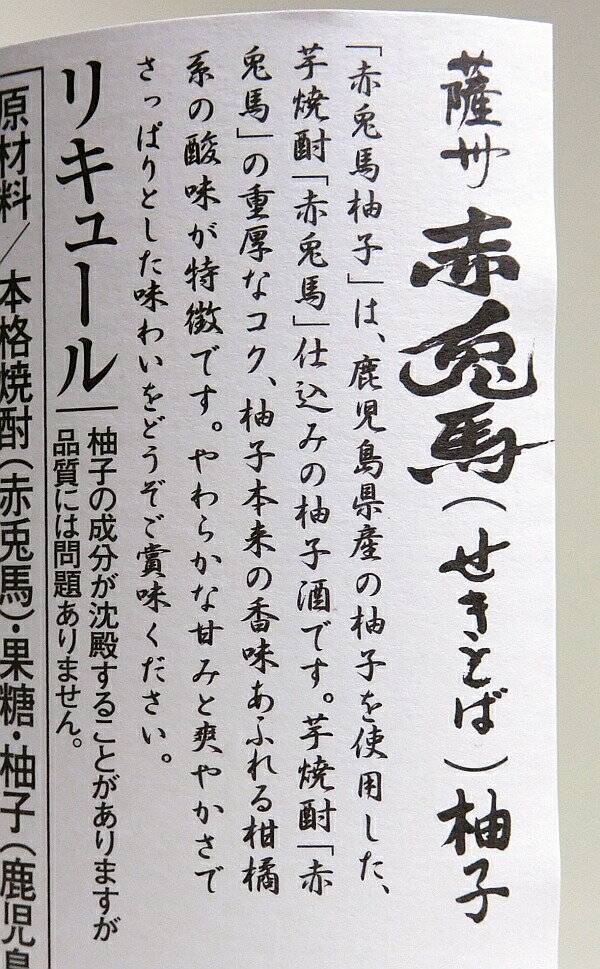 薩州 赤兎馬（せきとば）柚子
「赤兎馬柚子」は、鹿児島県産の柚子を使用した、
芋焼酎「赤兎馬」仕込みの柚子酒です。芋焼酎「赤
兎馬」の重厚なコク、柚子本来の香味あふれる柑橘
系の酸味が特徴です。やわらかな甘みと爽やかさで
さっぱりとした味わいをどうぞご賞味ください。
リキュール
柚子の成分が沈殿することがありますが
品質には問題ありません。
原材料／本格焼酎（赤兎馬）・果糖・柚子（鹿児島